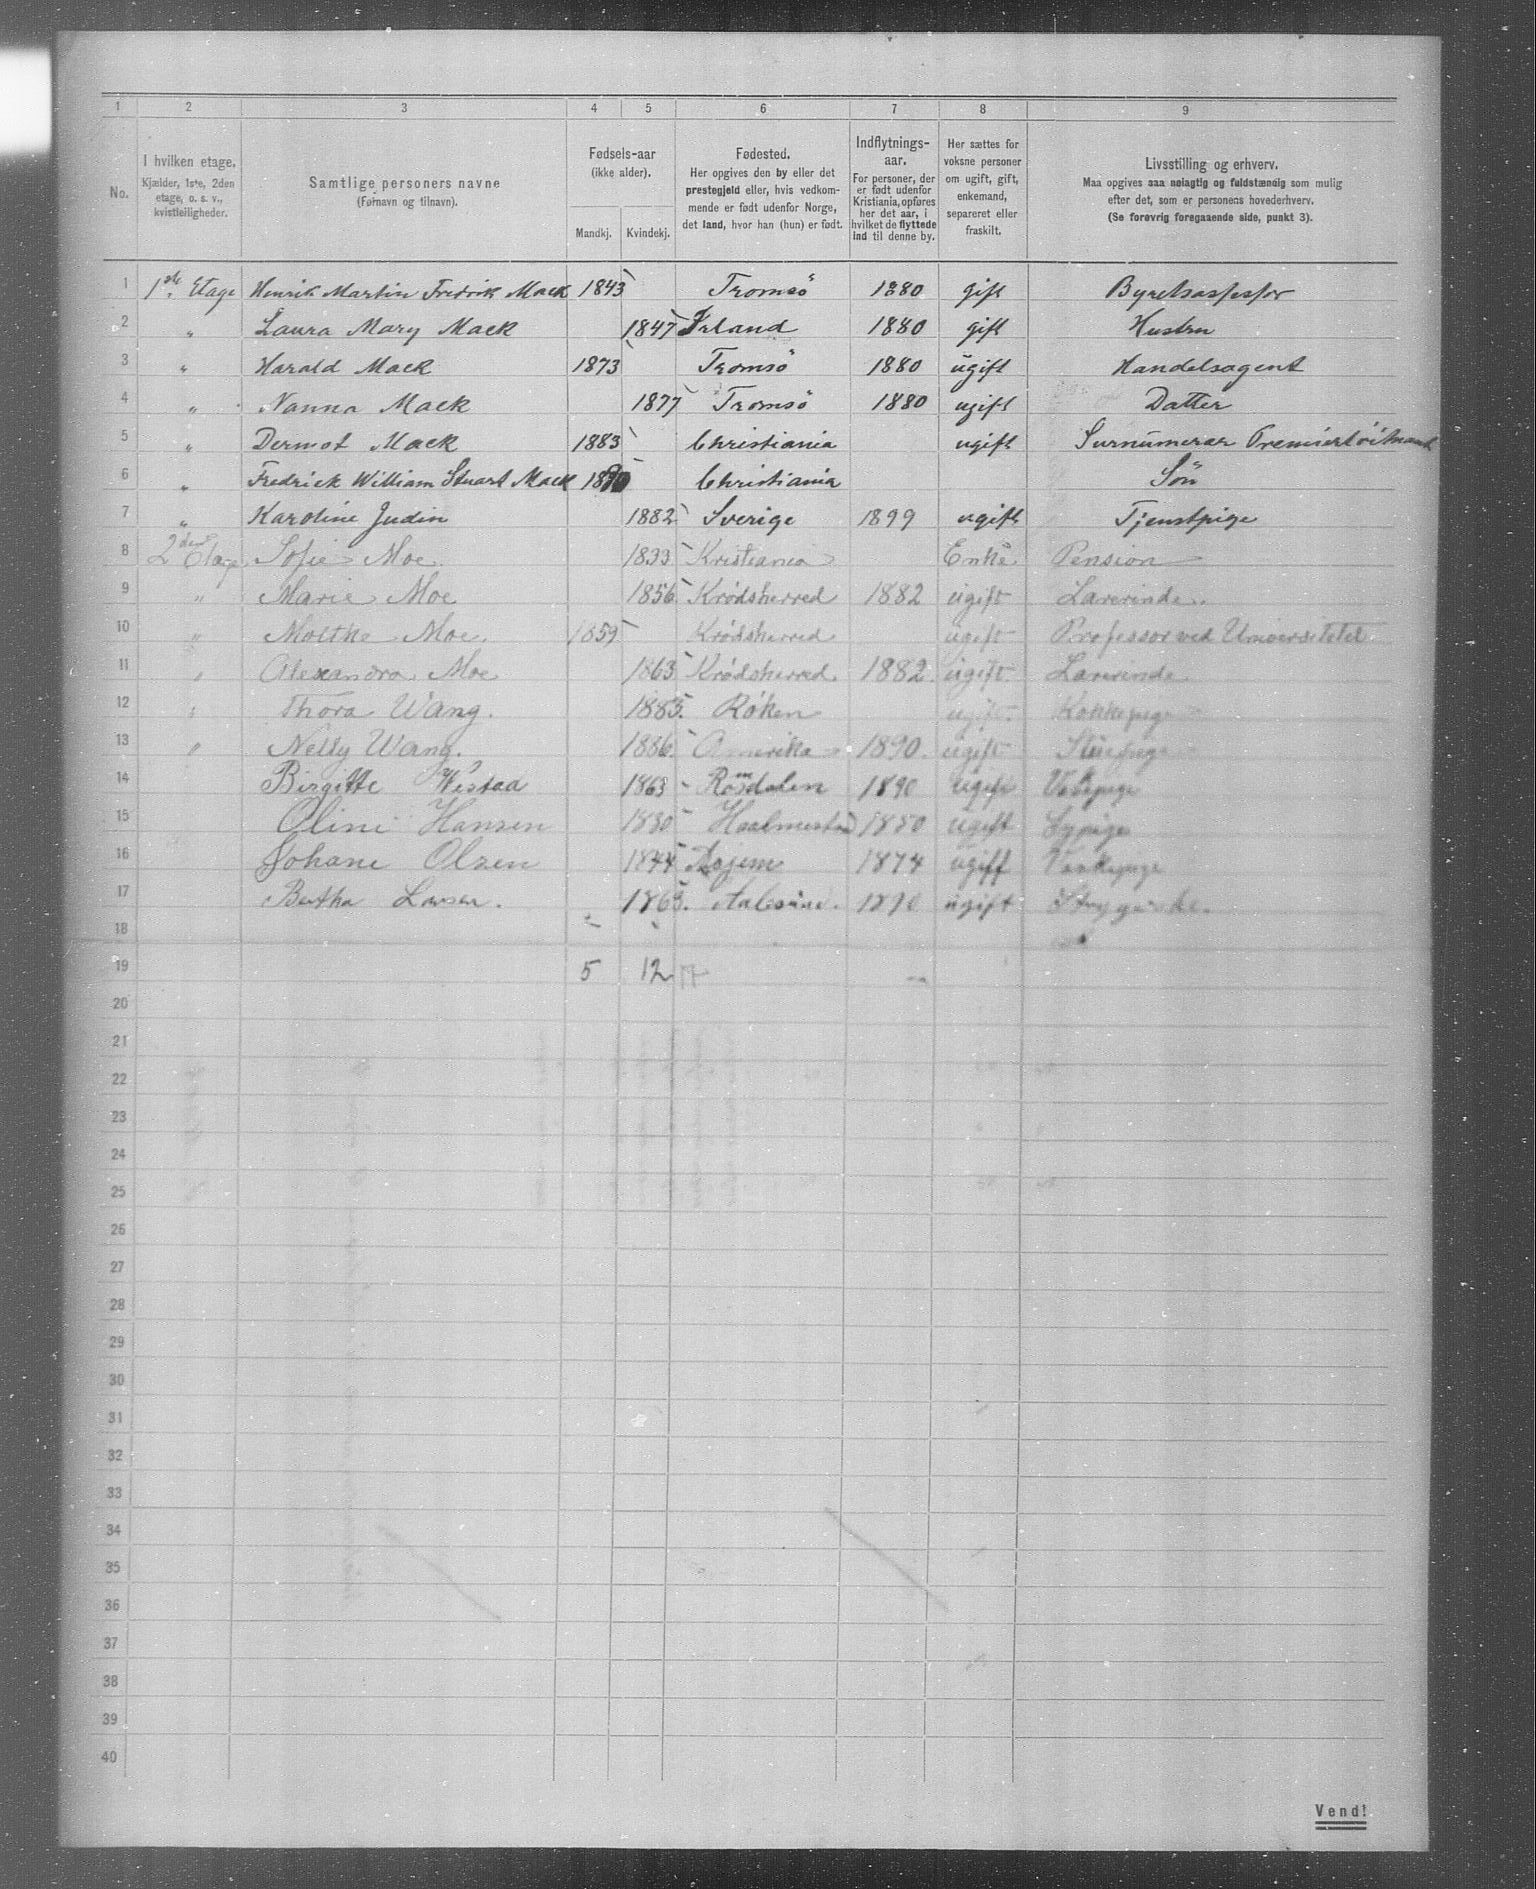 1 2 3 4 5 6 7 8 9
No.
I hvilken etage.
Kjælder, 1ste, 2den
etage, o. s. v.,
kvistleiligheder.
Samtlige personers navne
(Fornavn og tilnavn).
Fødsels-aar
(ikke alder).
Mandkj. Kvindekj.
Fødested.
Her opgives den by eller det
prestegjeld eller, hvis vedkom-
mende er født udenfor Norge,
det land, hvor han (hun) er født.
Indflytnings-
aar.
For personer, der
er født udenfor
Kristiania, opføres
her det aar, i
hvilket de flyttede
ind til denne by.
Her sættes for
voksne personer
om ugift, gift,
enkemand,
separeret eller
fraskilt.
Livsstilling og erhverv.
Maa opgives saa nøiagtig og fuldstændig som mulig
efter det, som er personens hovederhverv.
(Se forøvrig foregaaende side, punkt 3).
1 1ste Etage Henrik Martin Fredrik Mack 1843 Tromsö 1880 gift Byretsassessor
2 " Laura Mary Mack 1847 Irland 1880 gift Hustru
3 " Harald Mack 1873 Tromsö 1880 ugift Handelsagent
4 " Nanna Mack 1877 Tromsö 1880 ugift Datter
5 " Dermot Mack 1883 Christiania ugift Surnumerær Premierløitnant
6 " Fredrick William Stuart Mack Christiania Sön
7 " Karoline Judin 1882 Sverige 1899 ugift Tjenstpige
8 2den Etage Sofie Moe 1833 Kristiania Enke Pension
9 " Marie Moe 1856 Krödsherred 1882 ugift Lærerinde.
10 " Moltke Moe. 1859 Krödsherred ugift Professor ved Universitetet.
11 " Alexandra Moe 1863 Krödsherred 1882 ugift Lærerinde
12 " Thora Wang. 1885 Röken ugift. Kokkepige
13 " Nelly Wang. 1886 Amerika 1890. ugift Stuepige
14 Birgitte Wistad 1863 Romsdalen 1890 ugift
15 Oline Hansen 1880 ugift Sypige
16 Johane Olsen 1844 1874 ugift
17 Bertha Larsen. Aalesund. ugift Strygerske.
18
19 5 12
20
21
22
23
24
25
26
27
28
29
30
31
32
33
34
35
36
37
38
39
40
Vend!